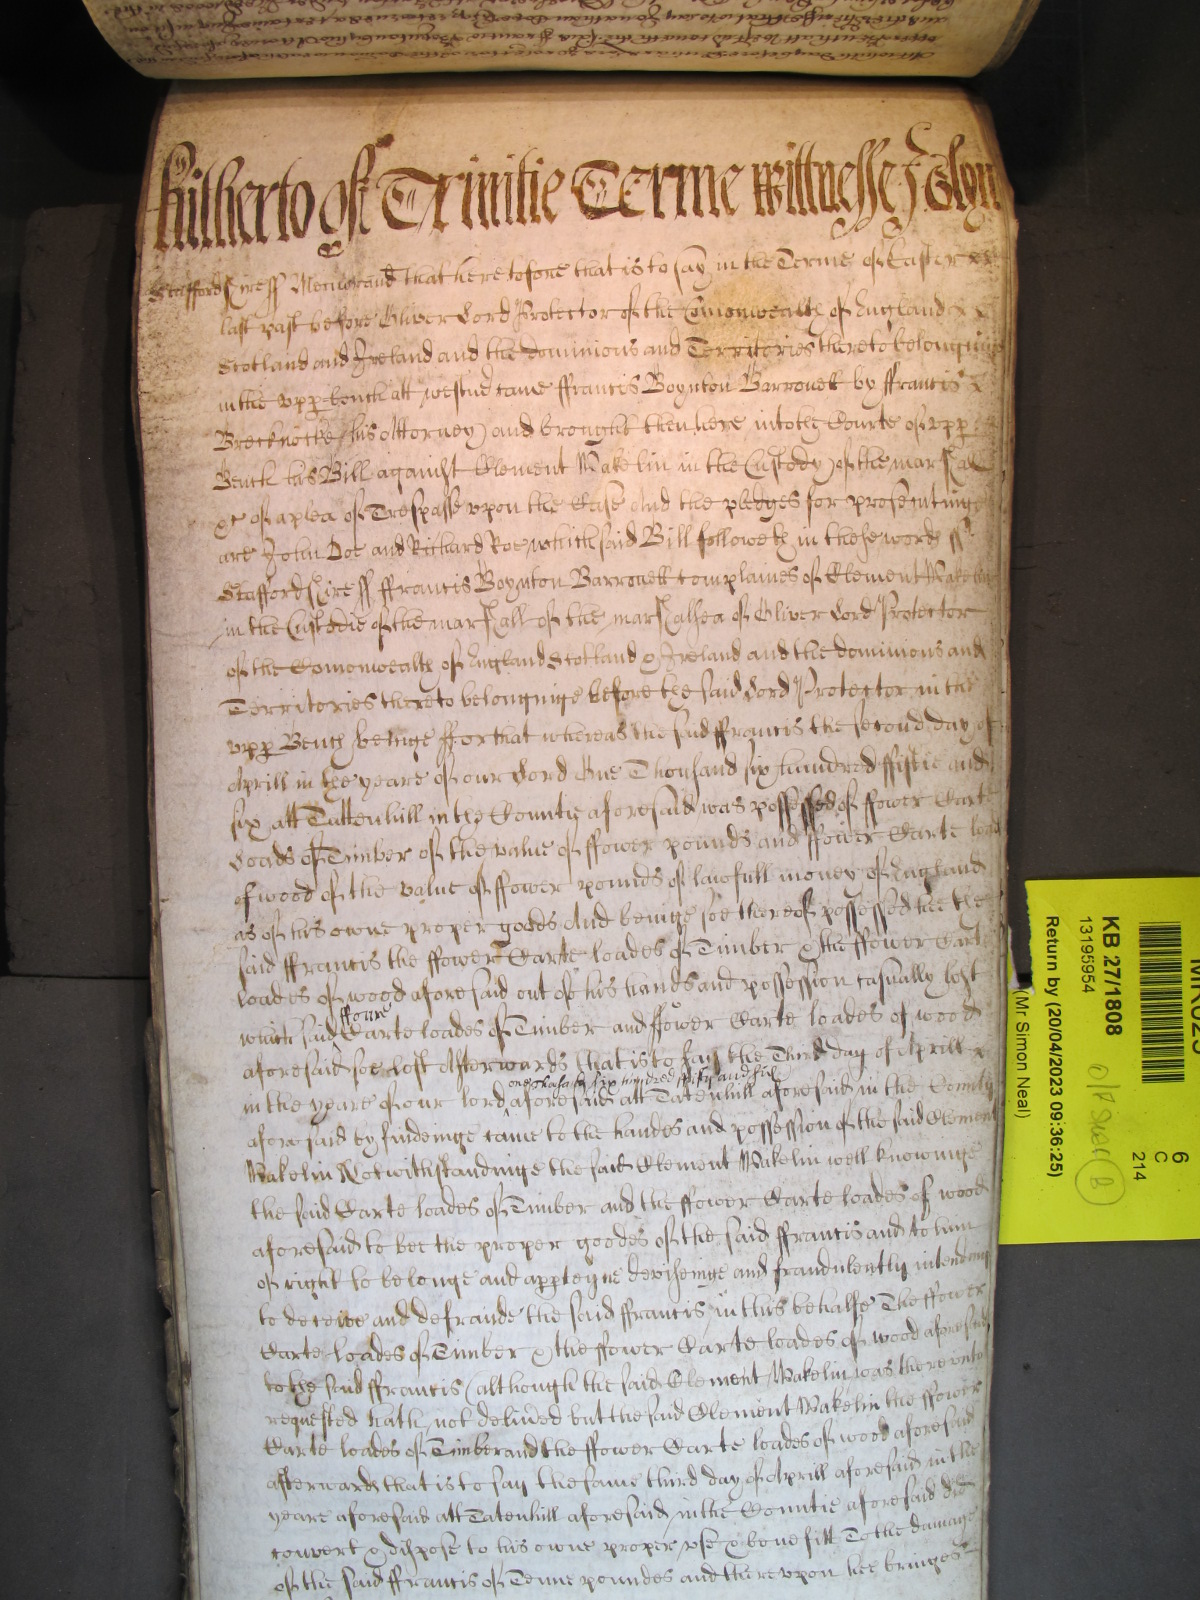 Hitherto of Trinitie Terme Wittnesse J Glyn
Staffordshire ss Memorand that heretofore that is to say in the Terme of Easter
last past before Oliver Lord Protector of the Comonwealth of England
Scotland and Ireland and the dominions and Territories thereto belonginge
in the upp bench att westm came ffrancis Boynton Barronett by ffrancis
Brecknocke his Attorney and brought then here into the Courte of upp
Bench his Bill against Clement Wakelin in the Custody of the marshall
&c of a plea of Trespasse upon the Case And the pledges for prosecutinge
are John Doe and Richard Roe which said Bill followeth in these words ss
Staffordshire ss ffrancis Boynton Barronett complaines of Clement Wakelin
in the Custodie of the marshall of the marshalsea of Oliver Lord Protector
of the Comonwealth of England Scotland & Ireland and the dominions and
Territories thereto belonginge before the said Lord Protector in the
upp Bench beinge ffor that whereas the said ffrancis the second day of
Aprill in the yeare of our Lord One Thousand six hundred ffiftie and
six att Tattenhill in the Countie aforesaid was possessed of ffower Carte
Loads of Timber of the value of ffower pounds and ffower Carte load
of wood of the value of ffower pounds of lawfull money of England
as of his owne proper goods And beinge soe thereof possessed hee the
said ffrancis the ffower Carte loades of Timber & the ffower Carte
loades of wood aforesaid out of his hands and possession casually lost
which said ffoure Carte loades of Timber and ffower Carte loades of wood
aforesaid soe lost Afterwards that is to say the Third day of Aprill
in the yeare of our lord one thousand six hundred fifty and six aforesaid att Tatenhill aforesaid in the County
aforesaid by findeinge came to the handes and possession of the said Clement
Wakelin Notwithstandinge the said Clement Wakelin well knowinge
the said Carte loades of Timber and the ffower Carte loades of wood
aforesaid to bee the proper goodes of the said ffrancis and to him
of right to belonge and apperteyne deviseinge and fraudulently intending
to deceive and defraude the said ffrancis in this behalfe The ffower
Carte loades of Timber & the ffower Carte loades of wood aforesaid
to the said ffrancis (although the said Clement Wakelin was thereunto
requested hath not delived but the said Clement Wakelin the ffower
Carte loades of Timber and the ffower Carte loades of wood aforesaid
afterwards that is to say the same third day of Aprill aforesaid in the
yeare aforesaid att Tatenhill aforesaid in the Countie aforesaid did
convert & dispose to his owne proper use & benefitt To the damage
of the said ffrancis of Tenne poundes and thereupon hee bringes
6
C
214
KB 27/1808
13195954
O/P Sheet (B)
Return by (20/04/2023 09:36:25)
(Mr Simon Neal)